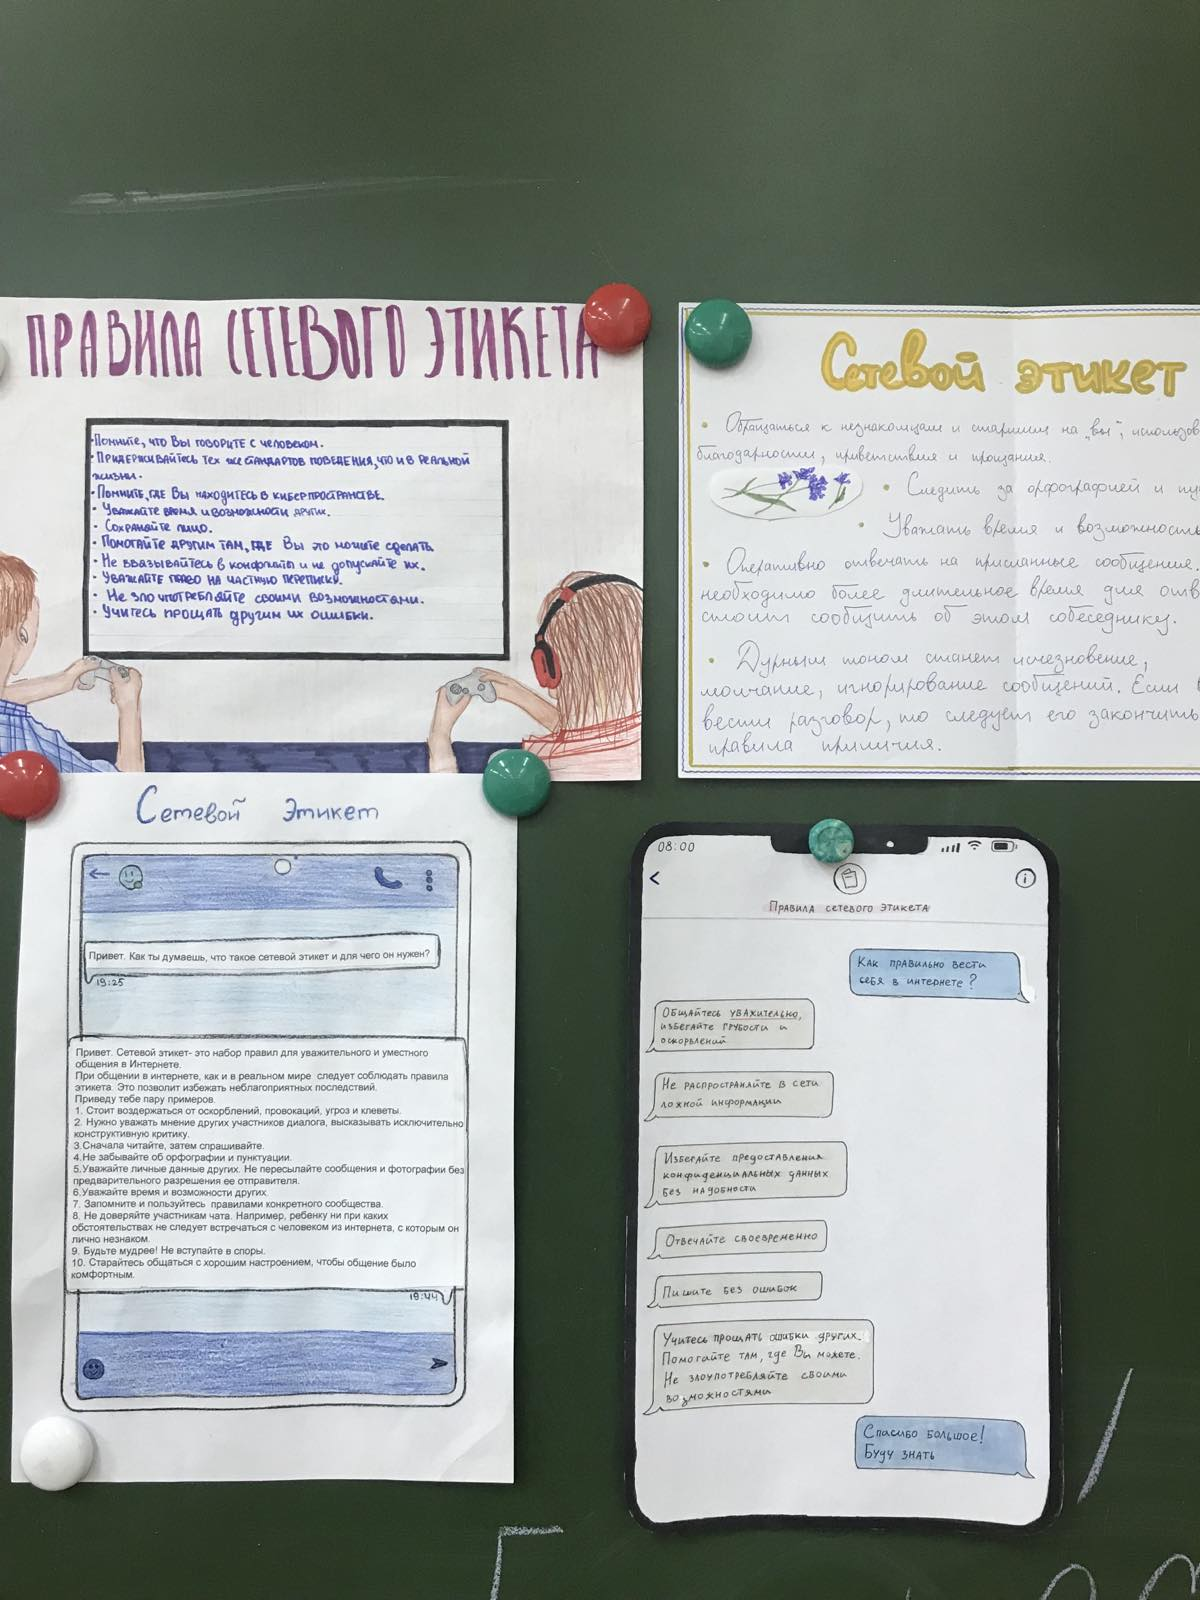 ПРАВИЛА СЕТЕВОГО ЭТИКЕТА
• Помните, что Вы говорите с человеком.
• Придерживайтесь тех же стандартов поведения, что и в реальной
жизни.
• Помните, где Вы находитесь в киберпространстве.
• Уважайте время и возможности других.
• Сохраняйте лицо.
• Помогайте другим там, где Вы это можете сделать.
• Не ввязывайтесь в конфликты и не допускайте их.
• Уважайте право на частную переписку.
• Не злоупотребляйте своими возможностями.
• Учитесь прощать другим их ошибки.
Сетевой этикет
• Обращаться к незнакомцам и старшим на „вы“, использов
благодарности, приветствия и прощания.
• Следить за орфографией и пу
• Уважать время и возможность
• Оперативно отвечать на присланные сообщения.
необходимо более длительное время для отв
стоит сообщить об этом собеседнику.
• Дурным тоном станет исчезновение,
молчание, игнорирование сообщений. Если
вести разговор, то следует его закончить
правила приличия.
Сетевой Этикет
Привет. Как ты думаешь, что такое сетевой этикет и для чего он нужен?
19:25
Привет. Сетевой этикет- это набор правил для уважительного и уместного
общения в Интернете.
При общении в интернете, как и в реальном мире следует соблюдать правила
этикета. Это позволит избежать неблагоприятных последствий.
Приведу тебе пару примеров.
1. Стоит воздержаться от оскорблений, провокаций, угроз и клеветы.
2. Нужно уважать мнение других участников диалога, высказывать исключительно
конструктивную критику.
3.Сначала читайте, затем спрашивайте.
4.Не забывайте об орфографии и пунктуации.
5.Уважайте личные данные других. Не пересылайте сообщения и фотографии без
предварительного разрешения ее отправителя.
6.Уважайте время и возможности других
7. Запомните и пользуйтесь правилами конкретного сообщества.
8. Не доверяйте участникам чата. Например, ребенку ни при каких
обстоятельствах не следует встречаться с человеком из интернета, с которым он
лично незнаком.
9. Будьте мудрее! Не вступайте в споры.
10. Старайтесь общаться с хорошим настроением, чтобы общение было
комфортным.
19:44
08:00
Правила сетевого этикета
Как правильно вести
себя в интернете?
Общайтесь уважительно,
избегайте грубости и
оскорблений
Не распространяйте в сети
ложной информации
Избегайте предоставления
конфиденциальных данных
без надобности
Отвечайте своевременно
Пишите без ошибок
Учитесь прощать ошибки других.
Помогайте там, где Вы можете.
Не злоупотребляйте своими
возможностями
Спасибо большое!
Буду знать